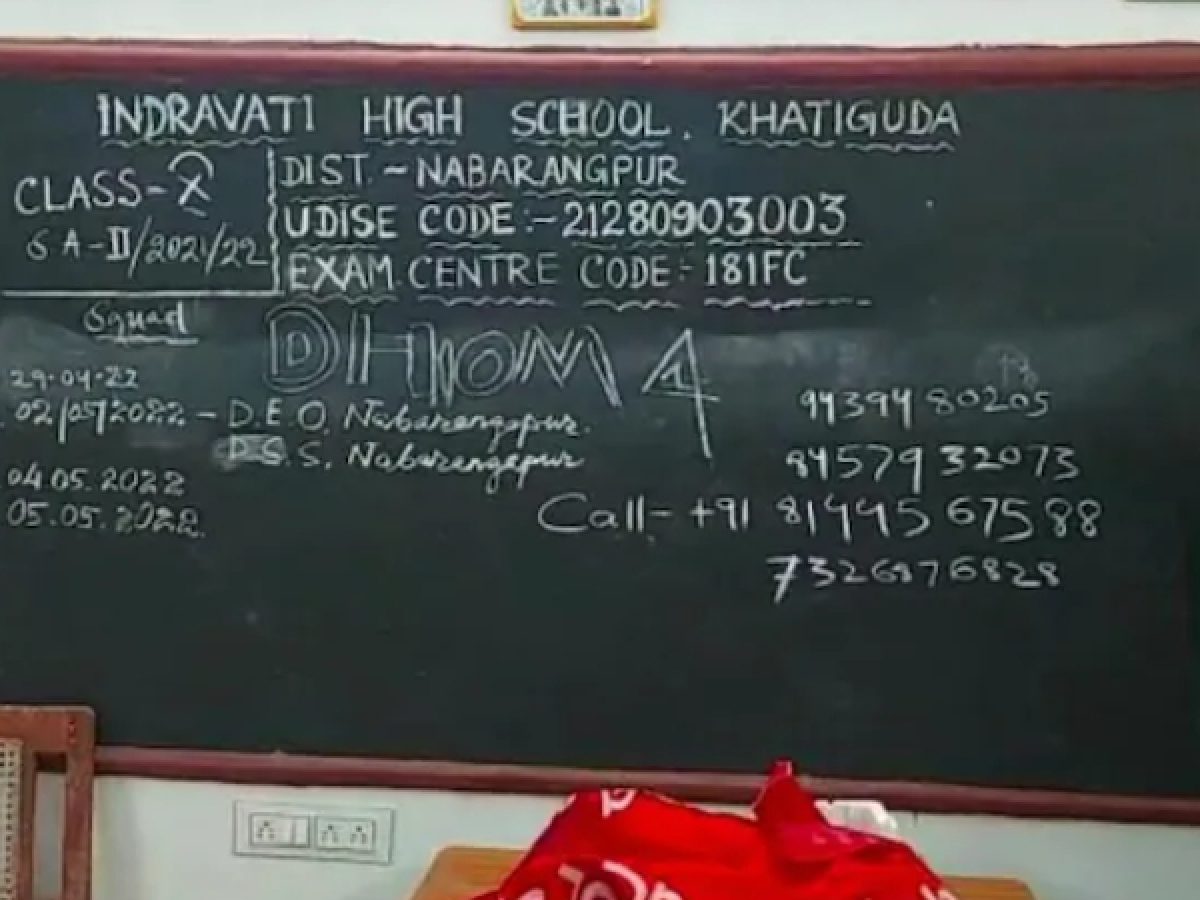 INDRAVATI HIGH SCHOOL. KHATIGUDA
CLASS-X
SA-II/2021/22
DIST.-NABARANGPUR
UDISE CODE:-21280903003
EXAM CENTRE CODE:-181FC
Squad
DHOOM 4
29-04-22
02/05/2022 - D.E.O, Nabarangapur.
D.S.S, Nabarangapur
04.05.2022
05.05.2022
94394 80205
8457932073
Call- +91 8144567588
7326876828